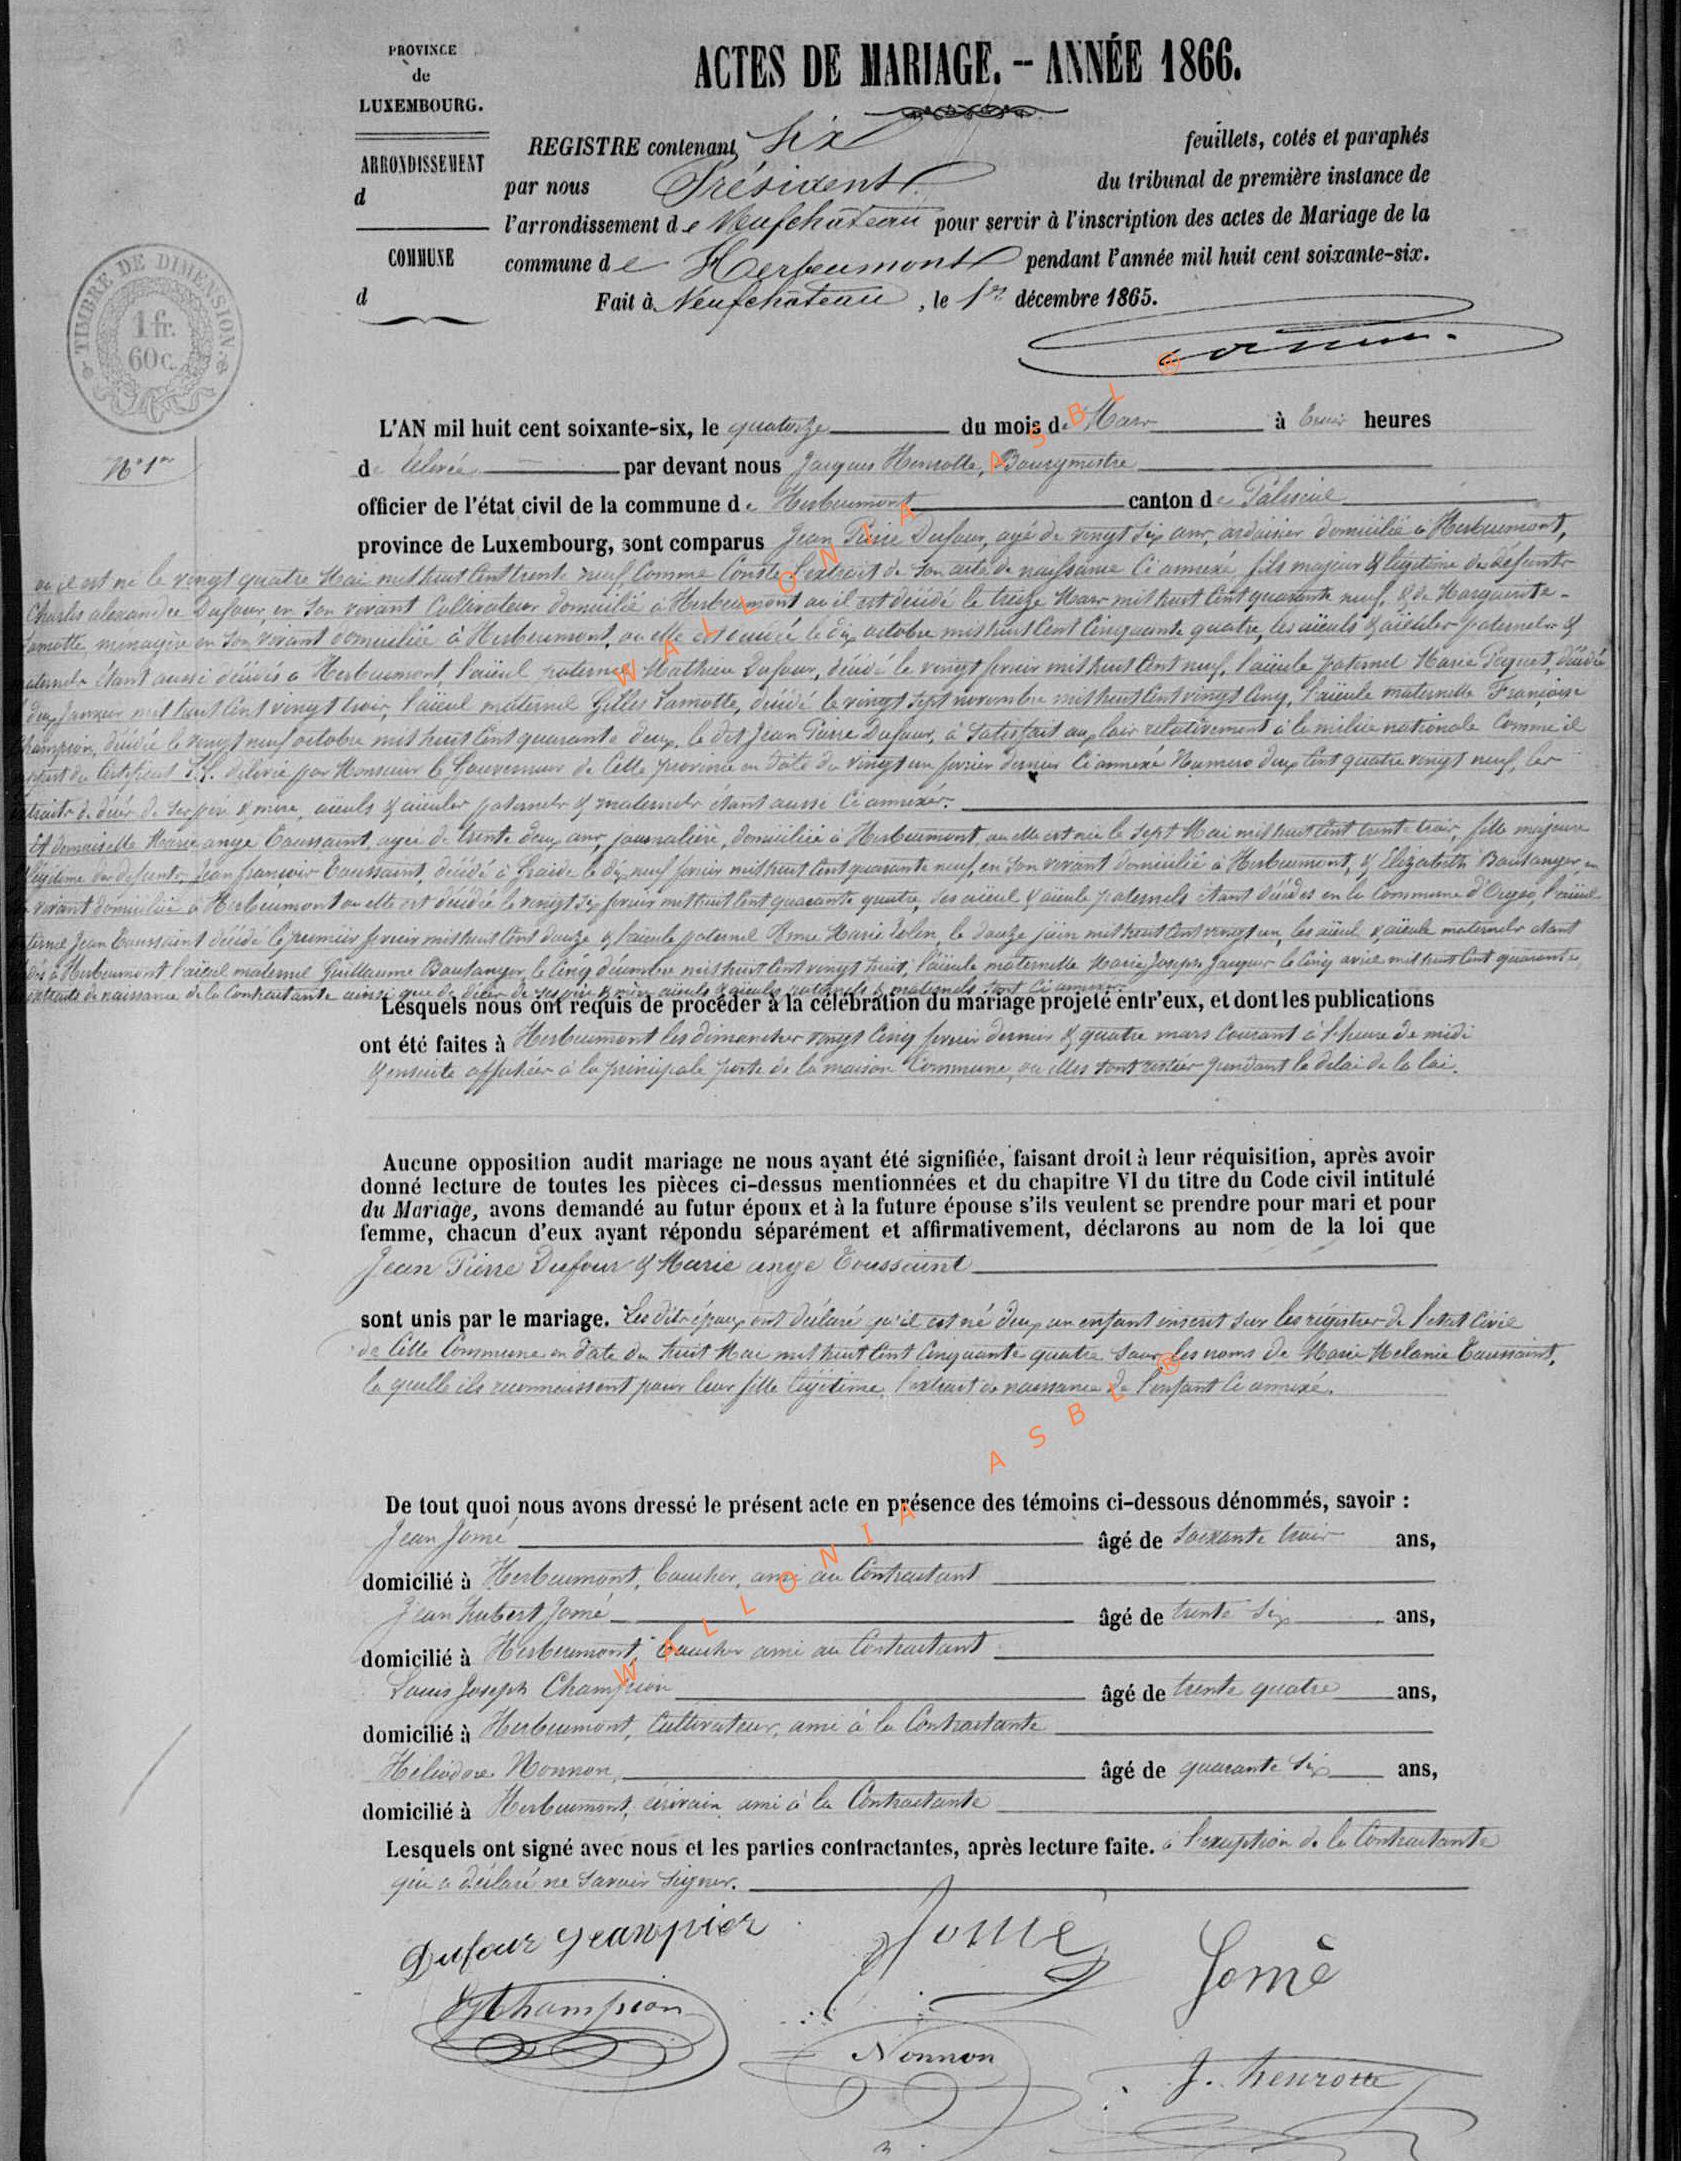 PROVINCE
de
LUXEMBOURG.
ARRONDISSEMENT
d
COMMUNE
d
TIMBRE DE DIMENSION.
1 fr.
60 c.
ACTES DE MARIAGE. -- ANNÉE 1866.
REGISTRE contenant Six feuillets, cotés et paraphés
par nous Président du tribunal de première instance de
l'arrondissement de Neufchâteau pour servir à l'inscription des actes de Mariage de la
commune de Herbeumont pendant l'année mil huit cent soixante-six.
Fait à Neufchâteau, le 1er décembre 1865.
N° 1er
L'AN mil huit cent soixante-six, le quatorze du mois de Mars à trois heures
de relevée par devant nous Jacques Henrotte, Bourgmestre
officier de l'état civil de la commune de Herbeumont canton de Paliseul
province de Luxembourg, sont comparus Jean Pierre Dufour, agé de vingt six ans, ardoisier domicilié à Herbeumont,
où il est né le vingt quatre Mai mil huit Cent trente neuf, Comme Conste l'extrait de son acte de naissance Ci annexé fils majeur & légitime des défunts
Charles alexandre Dufour, en son vivant Cultivateur domicilié à Herbeumont où il est décédé le treize Mars mil huit Cent quarante neuf, & de Marguerite
Lamotte, menagère en son vivant domiciliée à Herbeumont, où elle est décédée le dix octobre mil huit Cent Cinquante quatre, les aïeuls & aïeules paternels &
maternels étant aussi décédés à Herbeumont, l'aïeul paternel Mathieu Dufour, décédé le vingt fevrier mil huit Cent neuf, l'aïeule paternel Marie Pequet, décédée
deux janvier mil huit Cent vingt trois, l'aïeul maternel Gilles Lamotte, décédé le vingt sept novembre mil huit Cent vingt Cinq, l'aïeule maternelle Françoise
Champion, décédée le vingt neuf octobre mil huit Cent quarante deux, le dit Jean Pierre Dufour, à satisfait aux lois relativement à la milice nationale Comme il
du Certificat délivré par Monsieur le Gouverneur de Cette province en date du vingt un fevrier dernier Ci annexé Numero deux Cent quatre vingt neuf, les
extraits de décès de ses père & mère, aïeuls & aïeules paternels & maternels étant aussi Ci annexés.
Et demoiselle Marie ange Toussaint, agée de trente deux ans, journalière, domiciliée à Herbeumont, où elle est née le sept Mai mil huit Cent trente trois, fille majeure
légitime des defunts Jean françois Toussaint, décédé à Graide le dix neuf fevrier mil huit Cent quarante neuf, en son vivant domicilié à Herbeumont, & Elizabeth Boulanger, en
vivant domiciliée à Herbeumont où elle est décédée le vingt six fevrier mil huit Cent quarante quatre, ses aïeul & aïeule paternels étant décédés en la Commune d'Orgeo, l'aïeul
paternel Jean Toussaint décédé le premier fevrier mil huit Cent douze & l'aïeule paternel Anne Marie Colin, le douze juin mil huit Cent vingt un, les aïeul & aïeule maternels étant
à Herbeumont l'aïeul maternel Guillaume Boulanger, le Cinq décembre mil huit Cent vingt huit, l'aïeule maternelle Marie Joseph Jacques le Cinq avril mil huit Cent quarante,
extraits de naissance de la Contractante ainsi que de décès de ses père & mère, aïeuls & aïeules paternels & maternels sont Ci annexés.
Lesquels nous ont requis de procéder à la célébration du mariage projeté entr'eux, et dont les publications
ont été faites à Herbeumont les dimanches vingt Cinq fevrier dernier & quatre mars Courant à l'heure de midi
& ensuite affichées à la principale porte de la maison Commune, où elles sont restées pendant le délai de la loi.
Aucune opposition audit mariage ne nous ayant été signifiée, faisant droit à leur réquisition, après avoir
donné lecture de toutes les pièces ci-dessus mentionnées et du chapitre VI du titre du Code civil intitulé
du Mariage, avons demandé au futur époux et à la future épouse s'ils veulent se prendre pour mari et pour
femme, chacun d'eux ayant répondu séparément et affirmativement, déclarons au nom de la loi que
Jean Pierre Dufour & Marie ange Toussaint
sont unis par le mariage. Les dits époux ont déclaré qu'il est né d'eux un enfant inscrit sur les régistres de l'etat Civil
de Cette Commune en date du huit Mai mil huit Cent Cinquante quatre sous les noms de Marie Melanie Toussaint,
la quelle ils reconnaissent pour leur fille légitime, l'extrait de naissance de l'enfant Ci annexé.
De tout quoi nous avons dressé le présent acte en présence des témoins ci-dessous dénommés, savoir :
Jean Jomé âgé de soixante trois ans,
domicilié à Herbeumont, Coucher, ami au Contractant
Jean hubert Jomé âgé de trente six ans,
domicilié à Herbeumont, Coucher ami au Contractant
Louis Joseph Champion âgé de trente quatre ans,
domicilié à Herbeumont, Cultivateur, ami à la Contractante
Héliodore Nonnon, âgé de quarante six ans,
domicilié à Herbeumont, écrivain, ami à la Contractante
Lesquels ont signé avec nous et les parties contractantes, après lecture faite. à l'exception de la Contractante
qui a déclaré ne savoir signer.
Dufour jeanpier
Jomé
Jomé
Champion
Nonnon
J. henrotte
WALLONIA ASBL ®
WALLONIA ASBL ®